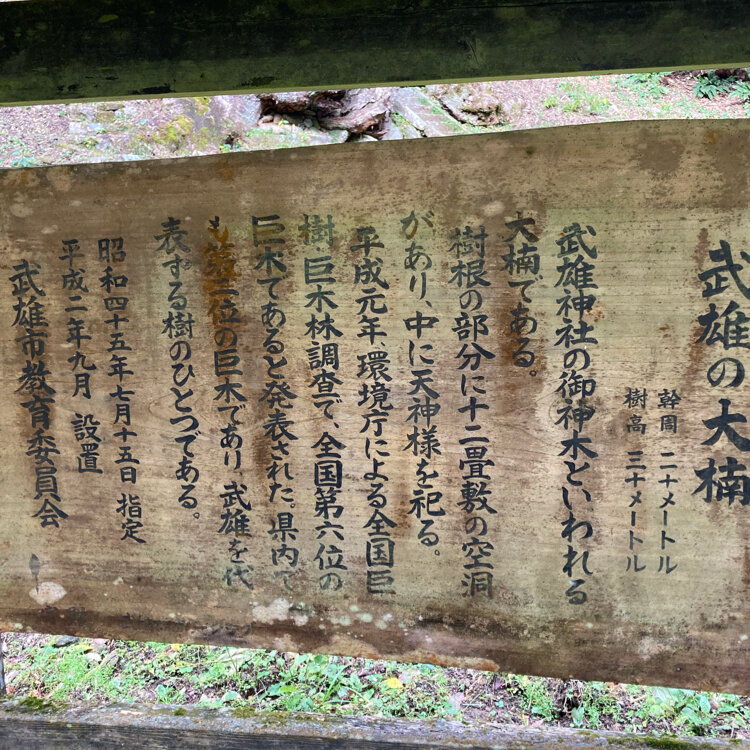 武雄の大楠
幹周 二十メートル
樹高 三十メートル
武雄神社の御神木といわれる
大楠である。
樹根の部分に十二畳敷の空洞
があり、中に天神様を祀る。
平成元年、環境庁による全国巨
樹巨木林調査で、全国第六位の
巨木であると発表された。県内で
も第二位の巨木であり、武雄を代
表する樹のひとつである。
昭和四十五年七月十五日 指定
平成二年九月 設置
武雄市教育委員会